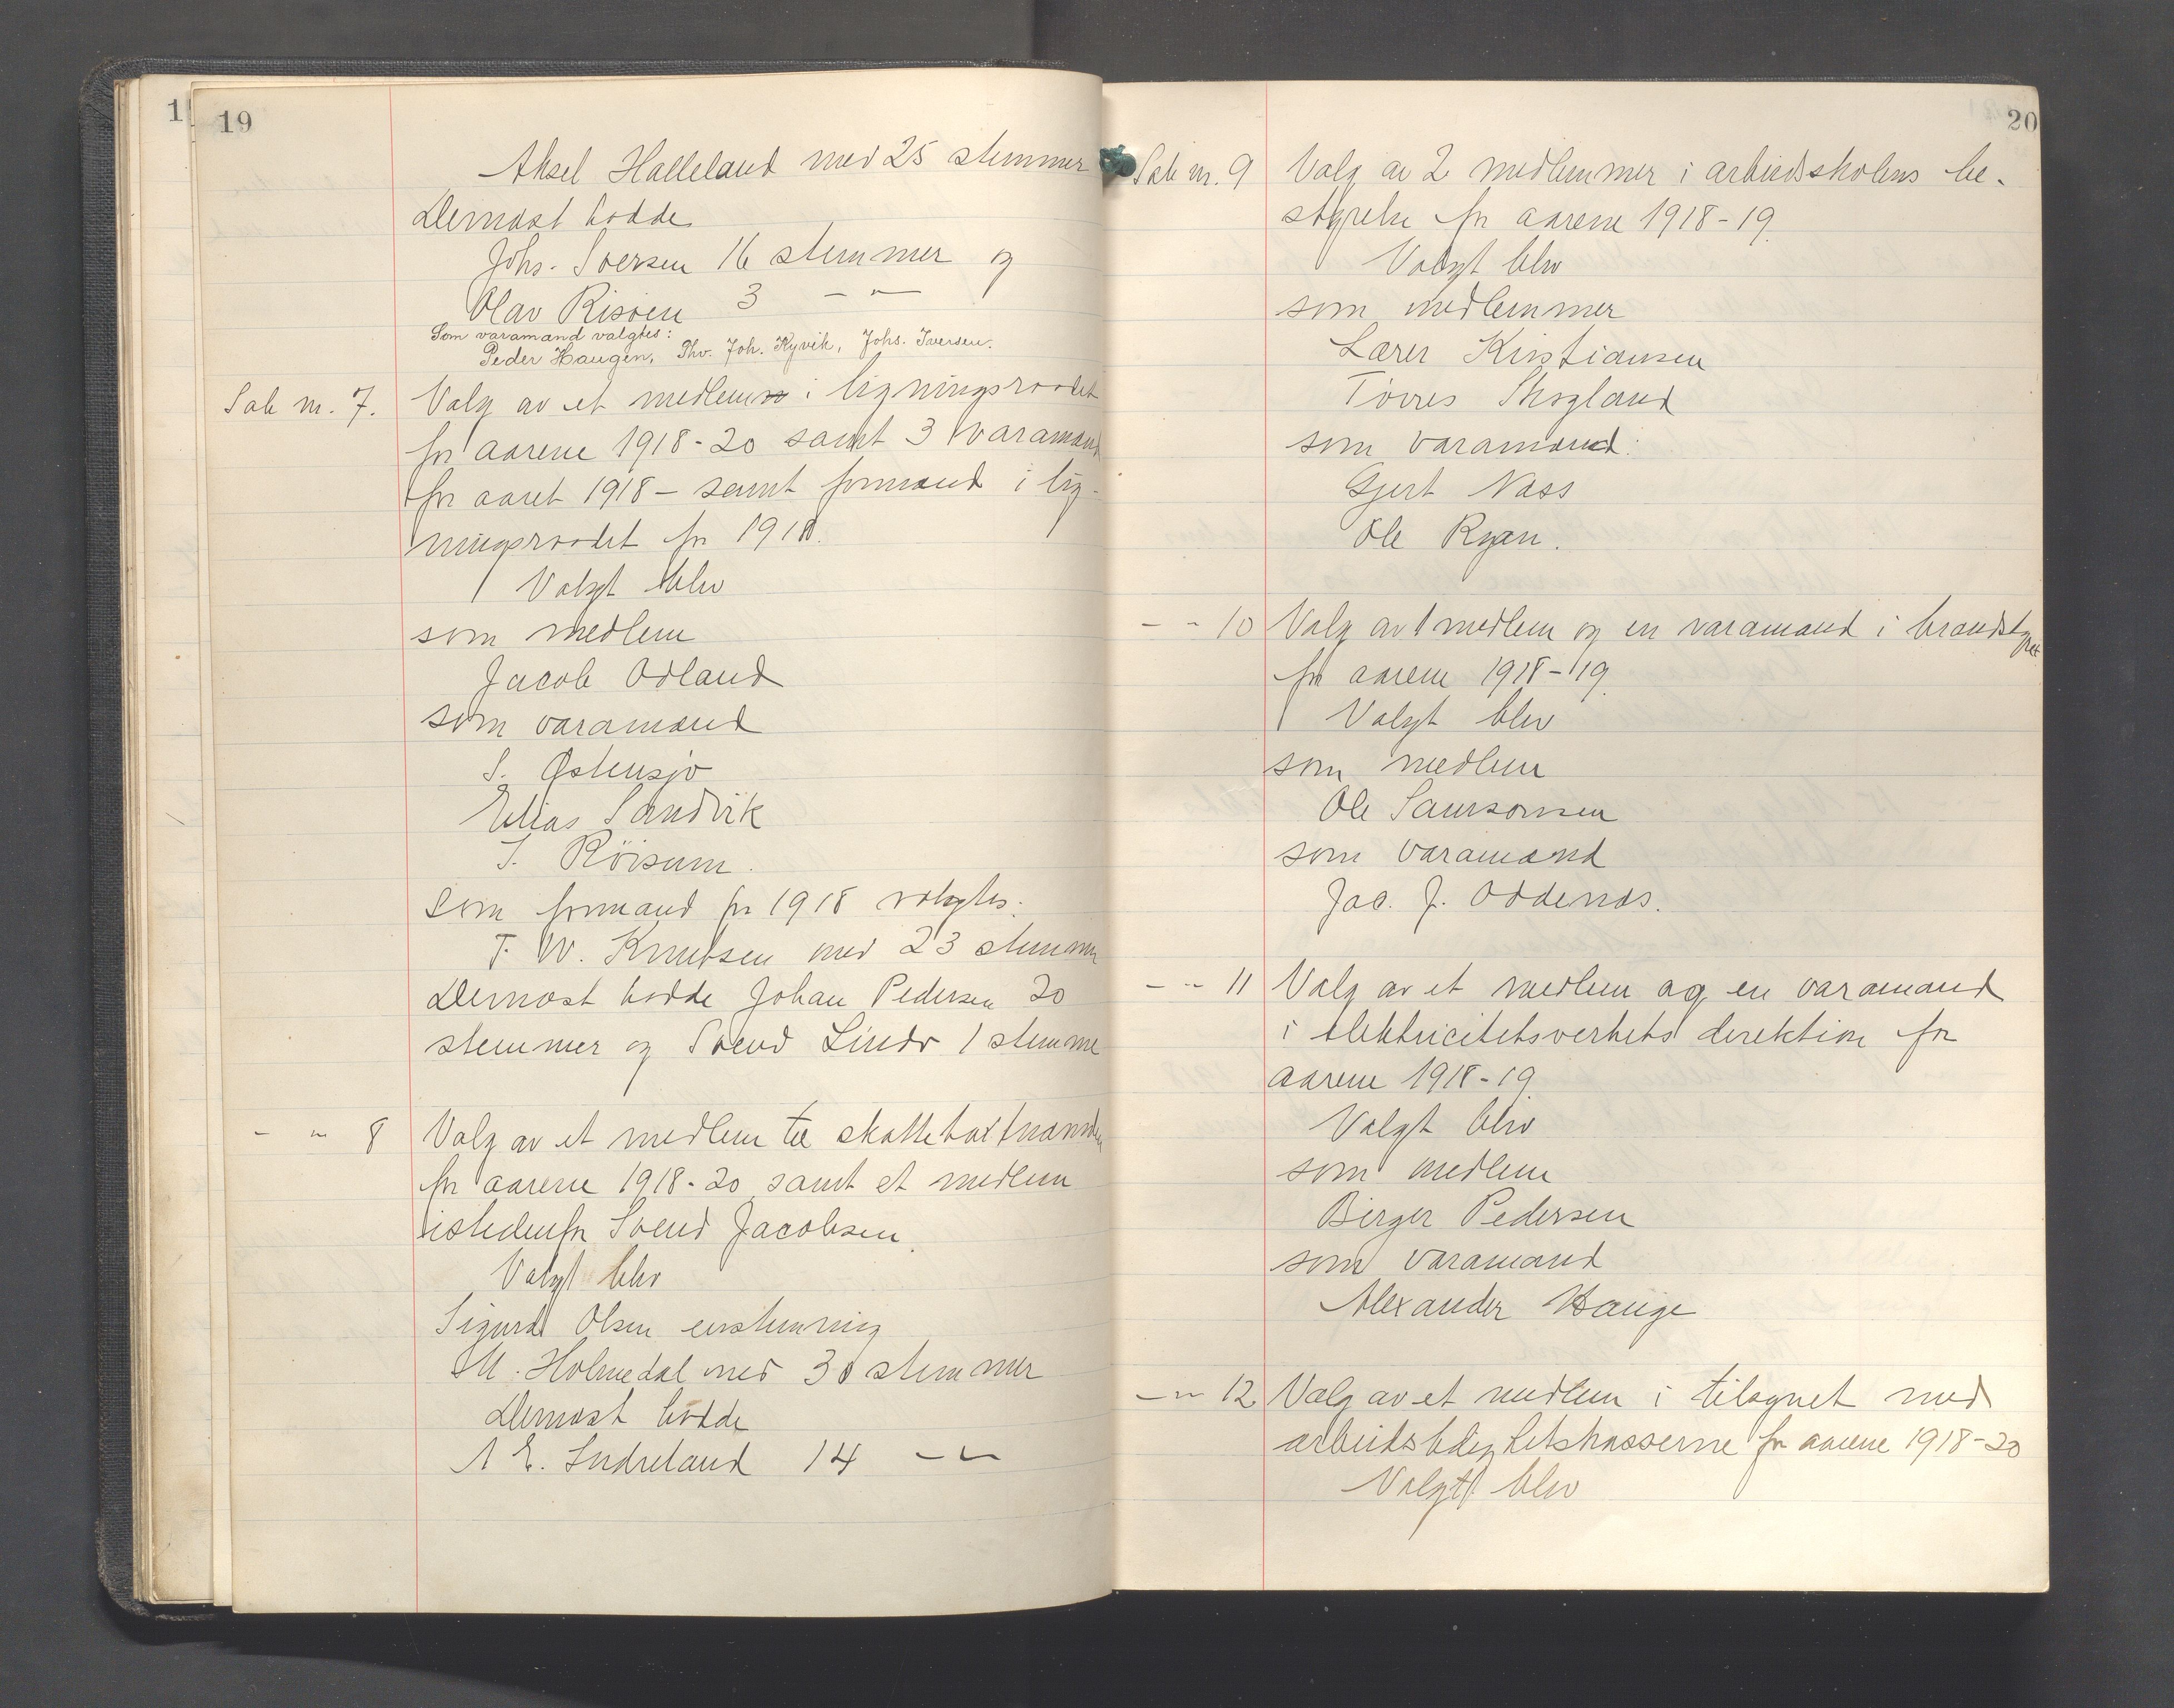 1
19
Aksel Halleland med 25 stemmer
Dernæst hadde
Johs. Iversen 16 stemmer og
Olav Risøen 3 — " —
Som varamænd valgtes:
Peder Haugen, Thv. Joh. Kyvik, Johs. Iversen.
Sak nr. 7. Valg av et medlem i ligningsraadet
for aarene 1918-20 samt 3 varamænd
for aaret 1918 – samt formand i lig-
ningsraadet for 1918.
Valgt blev
som medlem
Jacob Odland
som varamænd
S. Østensjø
Elias Sandvik
T. Röisum.
Som formand for 1918 valgtes:
T. W. Knutsen med 23 stemmer
Dernæst hadde Johan Pedersen 20
stemmer og Svend Lindø 1 stemme
— " 8 Valg av et medlem til skattetakstnævnden
for aarene 1918-20 samt et medlem
istedenfor Svend Jacobsen.
Valgt blev
Sigurd Olsen enstemmig
M. Holmedal med 30 stemmer
Dernæst hadde
A E. Indreland 14 — " —
20
Sak nr. 9 Valg av 2 medlemmer i arbeidsskolens be-
styrelse for aarene 1918-19.
Valgt blev
som medlemmer
Lærer Kristiansen
Torres Skogland
som varamænd:
Gjert Næss
Ole Ryen.
— " 10 Valg av 1 medlem og en varamand i brandstyret
for aarene 1918-19.
Valgt blev
som medlem
Ole Samsonsen
som varamand
Jac. J. Oddenæs.
— " 11 Valg av et medlem og en varamand
i elektricitetsverkets direktion for
aarene 1918-19
Valgt blev
som medlem
Birger Pedersen
som varamand
Alexander Hauge
— " 12 Valg av et medlem i tilsynet med
arbeidsledighetskasserne for aarene 1918-20
Valgt blev